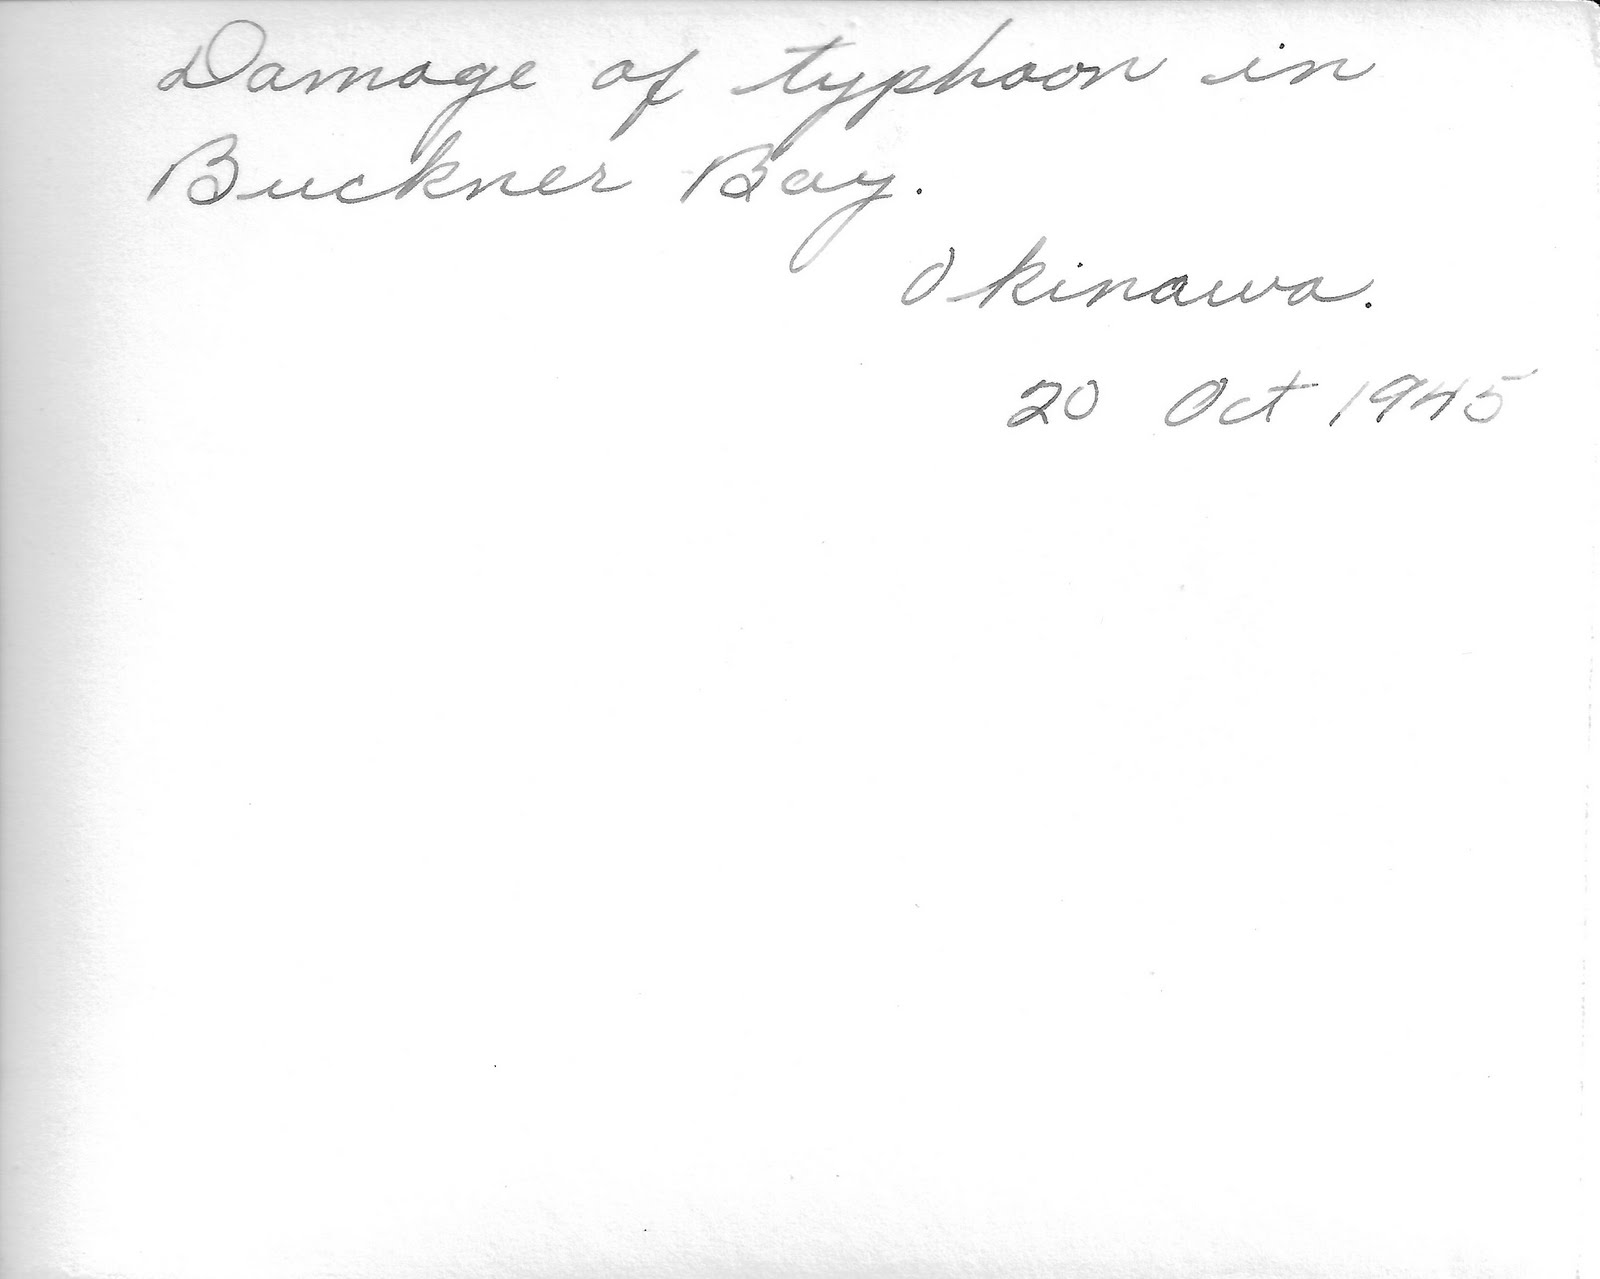 Damage of typhoon in
Buckner Bay.
Okinawa.
20 Oct 1945